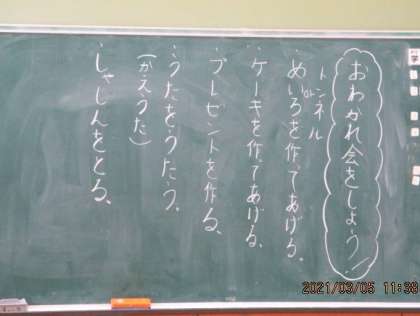 おわかれ会をしよう!
トンネル
めいろを作ってあげる。
or
ケーキを作ってあげる。
プレゼントを作る。
うたをうたう。
(かえうた)
しゃしんをとる。
2021/03/05 11:38